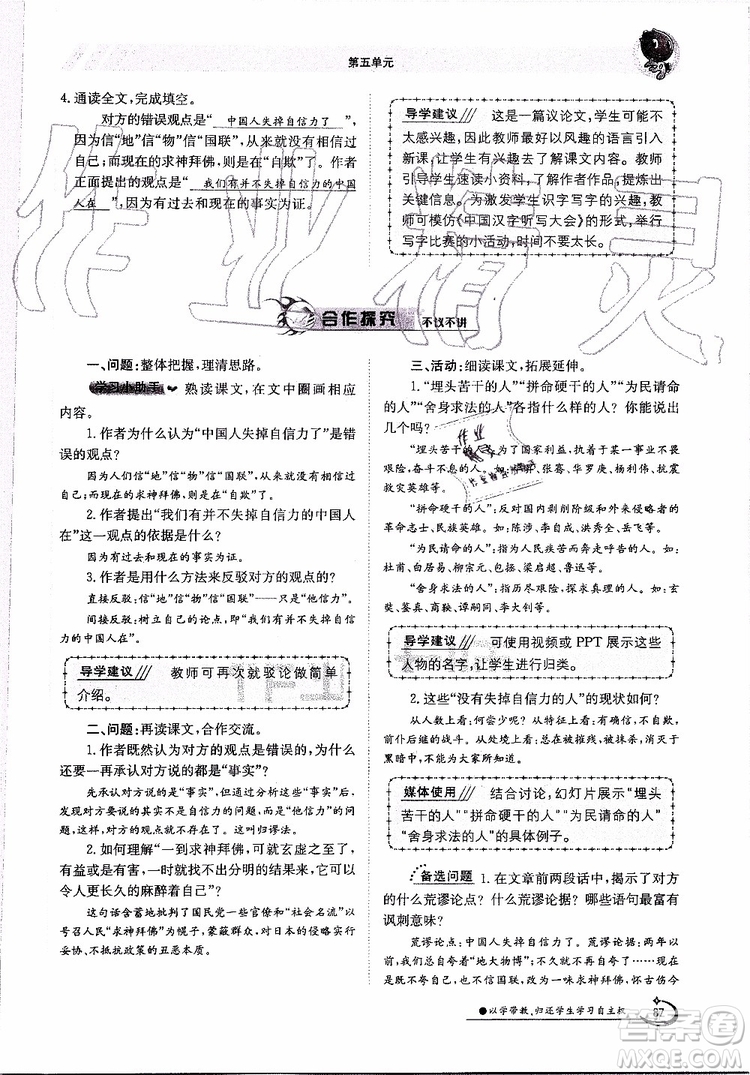 第五单元
4. 通读全文，完成填空。
对方的错误观点是“中国人失掉自信力了”，
因为信“地”信“物”信“国联”，就是不曾相信过
自己；而现在的求神拜佛，则是在“自欺”了。作者
正面提出的观点是“我们有并不失掉自信力的中国
人在”，因为有过去和现在的事实为证。
导学建议 这是一篇议论文，学生可能不
太感兴趣，因此教师最好以风趣的语言引入
新课，让学生有兴趣去了解课文内容。教师
可引导学生速读小资料，了解作者作品，提炼出
关键信息。为激发学生识字写字的兴趣，教
师可模仿《中国汉字听写大会》的形式，举行
写字比赛的小活动，时间不要太长。
合作探究 不议不讲
一、问题：整体把握，理清思路。
学习小助手 熟读课文，在文中圈画相应
内容。
1. 作者为什么认为“中国人失掉自信力了”是错
误的观点？
因为人们信“地”信“物”信“国联”，就是不曾相信过
自己；而现在的求神拜佛，则是在“自欺”了。
2. 作者提出“我们有并不失掉自信力的中国人
在”这一观点的依据是什么？
因为有过去和现在的事实为证。
3. 作者是用什么方法来反驳对方的观点的？
直接反驳：信“地”信“物”信“国联”——只是“他信力”。
间接反驳：树立自己的论点，即“我们有并不失掉自信力的
中国人在”。
导学建议 教师可再次就驳论做简单
介绍。
二、问题：再读课文，合作交流。
1. 作者既然认为对方的观点是错误的，为什么
还要一再承认对方说的都是“事实”？
先承认对方说的是“事实”，然后分析这些“事实”后指出，
对方前两个“事实”不是自信力的问题，而是“他信力”的问
题，第三个“事实”也不是自信力的问题，而是“自欺力”的问
题。这样敌论就不攻自破了。这种论证方法叫归谬法。
2. 如何理解“一到求神拜佛，可就玄虚之至了，
有益或是有害，一时就找不出分明的结果来，它可以
令人更长久的麻醉着自己”？
这句话含蓄地批判了国民党一些官僚和“社会名流”以
号召人民“求神拜佛”为幌子，蒙蔽群众，对日本的侵略实行
妥协、不抵抗政策的丑恶本质。
三、活动：细读课文，拓展延伸。
1. “埋头苦干的人”“拼命硬干的人”“为民请命
的人”“舍身求法的人”各指什么样的人？你能说出
几个吗？
“埋头苦干的人”：为了国家利益，执着于某一事业不畏
艰险，奋斗不息的人。如大禹、张骞、华罗庚、杨利伟、抗震
救灾英雄等。
“拼命硬干的人”：反对国内剥削阶级和国外侵略者的
革命志士、民族英雄。如：陈涉、李自成、洪秀全、岳飞等。
“为民请命的人”：为民族民生疾苦而奔走呼告的人。如：
杜甫、白居易、柳宗元、包拯、梁启超、鲁迅等。
“舍身求法的人”：指历尽艰险，探求真理的人。如：玄
奘、鉴真、商鞅、谭嗣同、李大钊等。
导学建议 可使用视频或 PPT 展示这些
人物的名字，让学生进行归类。
2. 这些“没有失掉自信力的人”的现状如何？
从人数上看：何尝少呢？从特征上看：有确信，不自欺，
前仆后继的战斗。从处境上看：总在被摧残，被抹杀，消灭于
黑暗中，不能为大家所知道。
媒体使用 结合讨论，幻灯片展示“埋头
苦干的人”“拼命硬干的人”“为民请命的人”
“舍身求法的人”的具体例子。
备选问题 1. 在文章前两段话中，敌对方
的什么荒谬论点？什么荒谬论据？哪些语句有
讽刺意味？
荒谬论点：中国人失掉自信力了。荒谬论据：两年以
前，我们总自夸着“地大物博”；不久就不再自夸了，只希望着国联；现
在是既不夸自己，也不信国联，改为一味求神拜佛，怀古伤今
●以学带教，归还学生学习自主权
87
作业精灵
答案圈
MXQE.COM